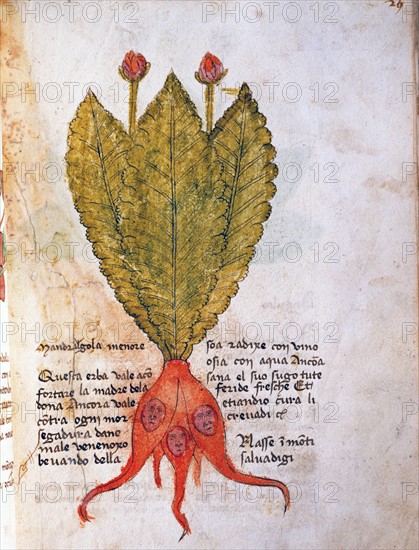 26
Mandragola menore
Questa erba vale acõ
fortare la madre dela
dona Ancora vale
cõtra ogni mor
segadura dano
male venenoxo
bevando della
soa radixe con vino
osia con aqua Ancõa
sana el suo sugo tute
feride fresche Et
etiandio cura li
crevadi
Nasse mõti
salvadigi